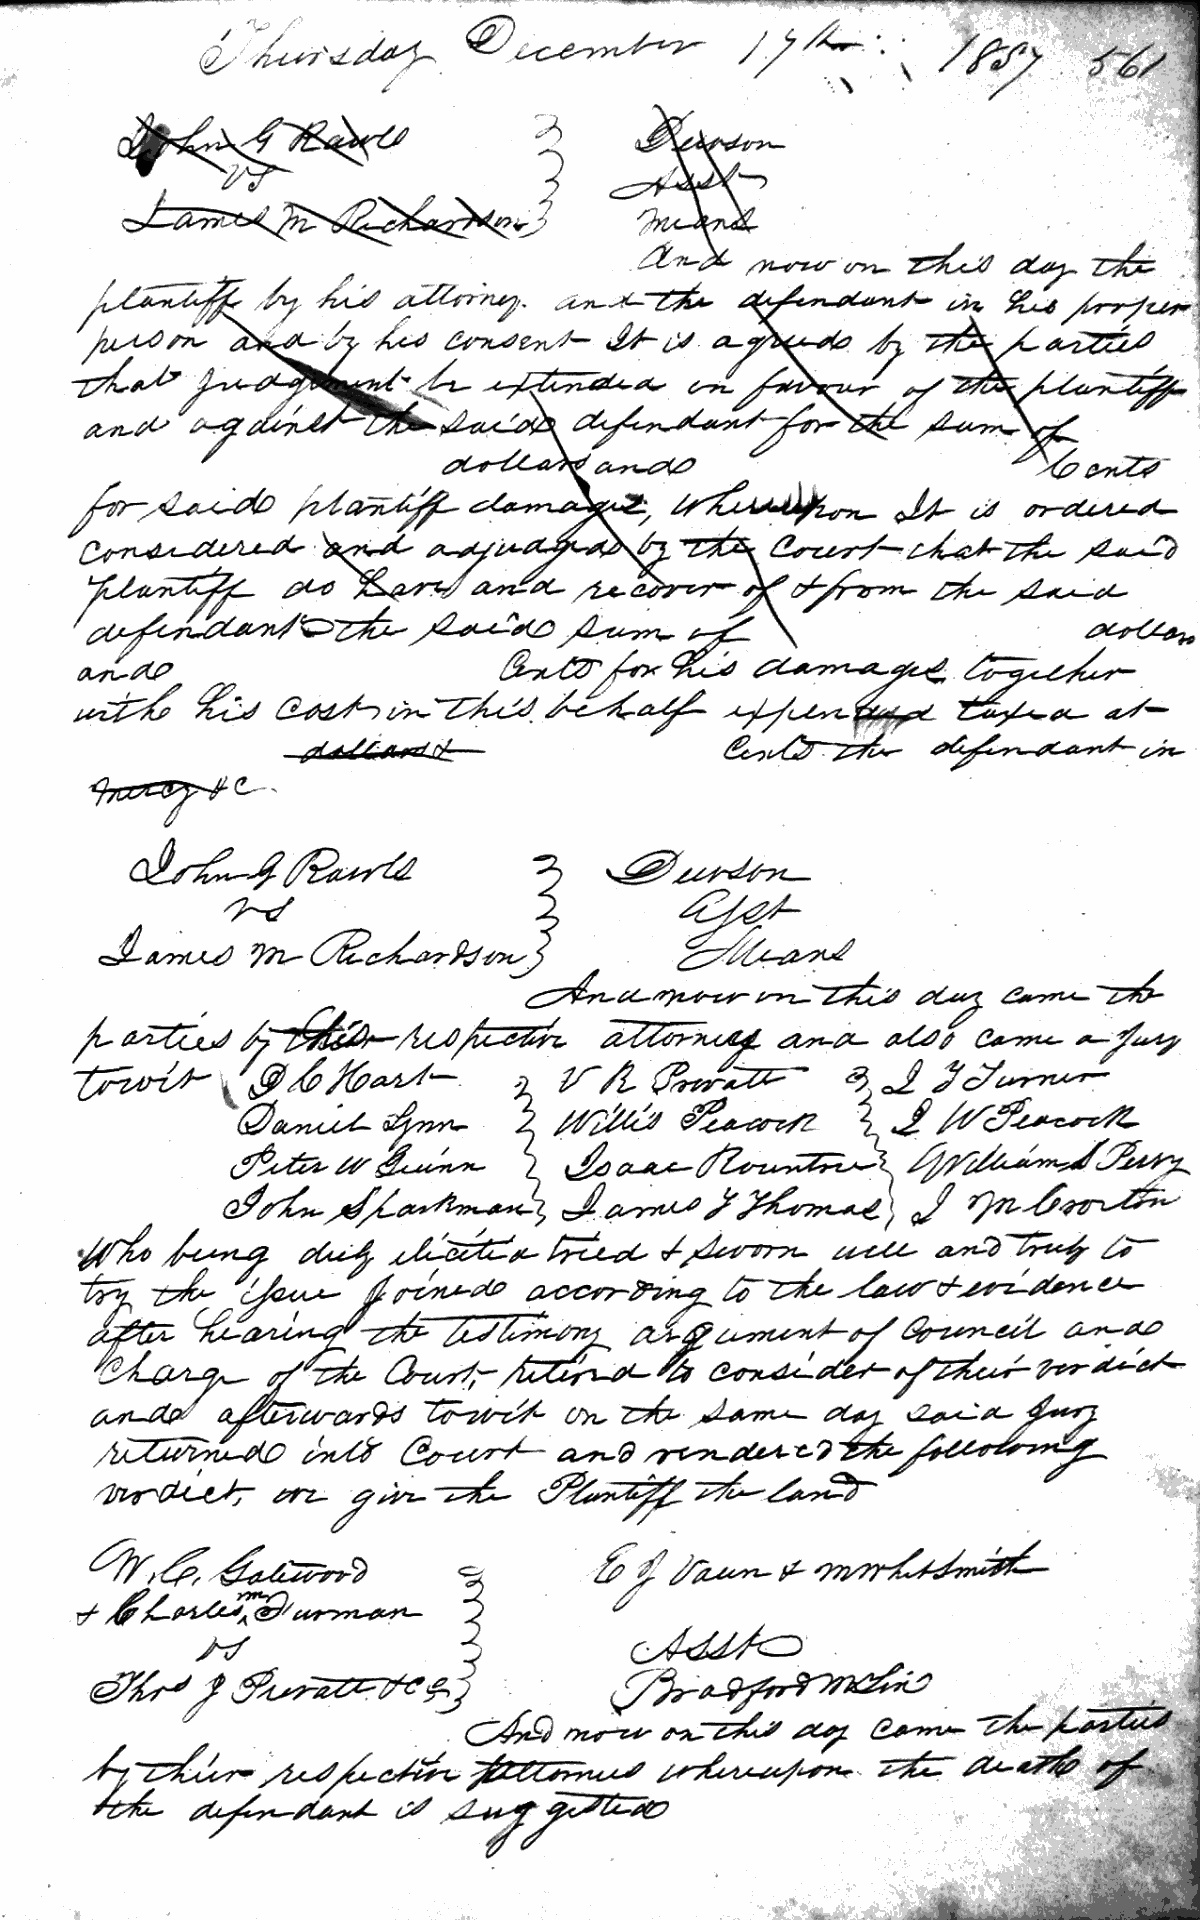 Thursday December 17th 1857 561
John G Rawls } Dewson
vs Asst
James M Richardson } means
And now on this day the
plantiff by his attorney and the defendant in his proper
person and by his consent It is agreed by the parties
that judgement be extended in favour of the plantiff
and against the said defendant for the sum of
dollars and Cents
for said plantiff damages, whereupon It is ordered
considered and adjudged by the Court that the said
plantiff do have and recover of & from the said
defendant the said sum of dollars
and Cents for his damages together
with his cost in this behalf expended taxed at
dollars & Cents the defendant in
mercy &c.
John G Rawls } Dewson
vs Asst
James M Richardson } Means
And now on this day came the
parties by their respective attorneys and also came a Jury
towit D C Hart } V R Prevatt } J F Turner
Daniel Lynn } Willis Peacock } J W Peacock
Peter W Guinn } Isaac Rountree } William S Perry
John Sparkman } James F Thomas } J M Crorton
Who being duly elicited tried & sworn well and truly to
try the issue joined according to the law & evidence
after hearing the testimony argument of Council and
Charge of the Court, retired to consider of their verdict
and afterwards towit on the same day said Jury
returned into Court and rendered the following
verdict, we give the Plantiff the land
W. C. Gatewood } E J Vaun & M Whit Smith
& Charles m Furman
vs Asst
Thos J Prevatt & Co } Bradford McLin
And now on this day came the parties
by their respective attornies whereupon the death of
the defendant is suggested